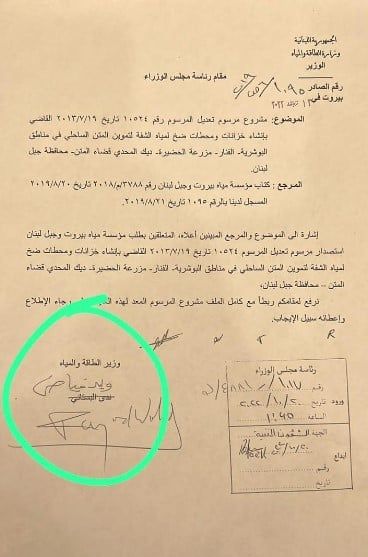 الجمهورية اللبنانية
وزارة الطاقة والمياه
الوزير
مقام رئاسة مجلس الوزراء
رقم الصادر
بيروت في
الموضوع: مشروع مرسوم تعديل المرسوم رقم ١٠٥٢٤ تاريخ ٢٠١٣/٧/١٩ القاضي
بإنشاء خزانات ومحطات ضخ لمياه الشفة لتموين المتن الساحلي في مناطق
البوشرية- الفنار- مزرعة الحضيرة- ديك المحدي قضاء المتن- محافظة جبل
لبنان.
المرجع : كتاب مؤسسة مياه بيروت وجبل لبنان رقم ٣٧٨٨/م/٢٠١٨ تاريخ ٢٠١٩/٨/٢٠
المسجل لدينا بالرقم ١٠٩٥ تاريخ ٢٠١٩/٨/٢١
إشارة الى الموضوع والمرجع المبينين أعلاه، المتعلقين بطلب مؤسسة مياه بيروت وجبل لبنان
استصدار مرسوم تعديل المرسوم رقم ١٠٥٢٤ تاريخ ٢٠١٣/٧/١٩ القاضي بإنشاء خزانات ومحطات ضخ
لمياه الشفة لتموين المتن الساحلي في مناطق البوشرية- الفنار- مزرعة الحضيرة- ديك المحدي قضاء
المتن – محافظة جبل لبنان،
نرفع لمقامكم ربطاً مع كامل الملف مشروع المرسوم المعد لهذه رجاء الإطلاع
وإعطائه سبيل الإيجاب.
وزير الطاقة والمياه
وليد فياض
ندى البستاني
رئاسة مجلس الوزراء
رقم
ورود تاريخ ٢٠٢٢/١٠/٢٠
الساعة
ايداع
تاريخ
رقم